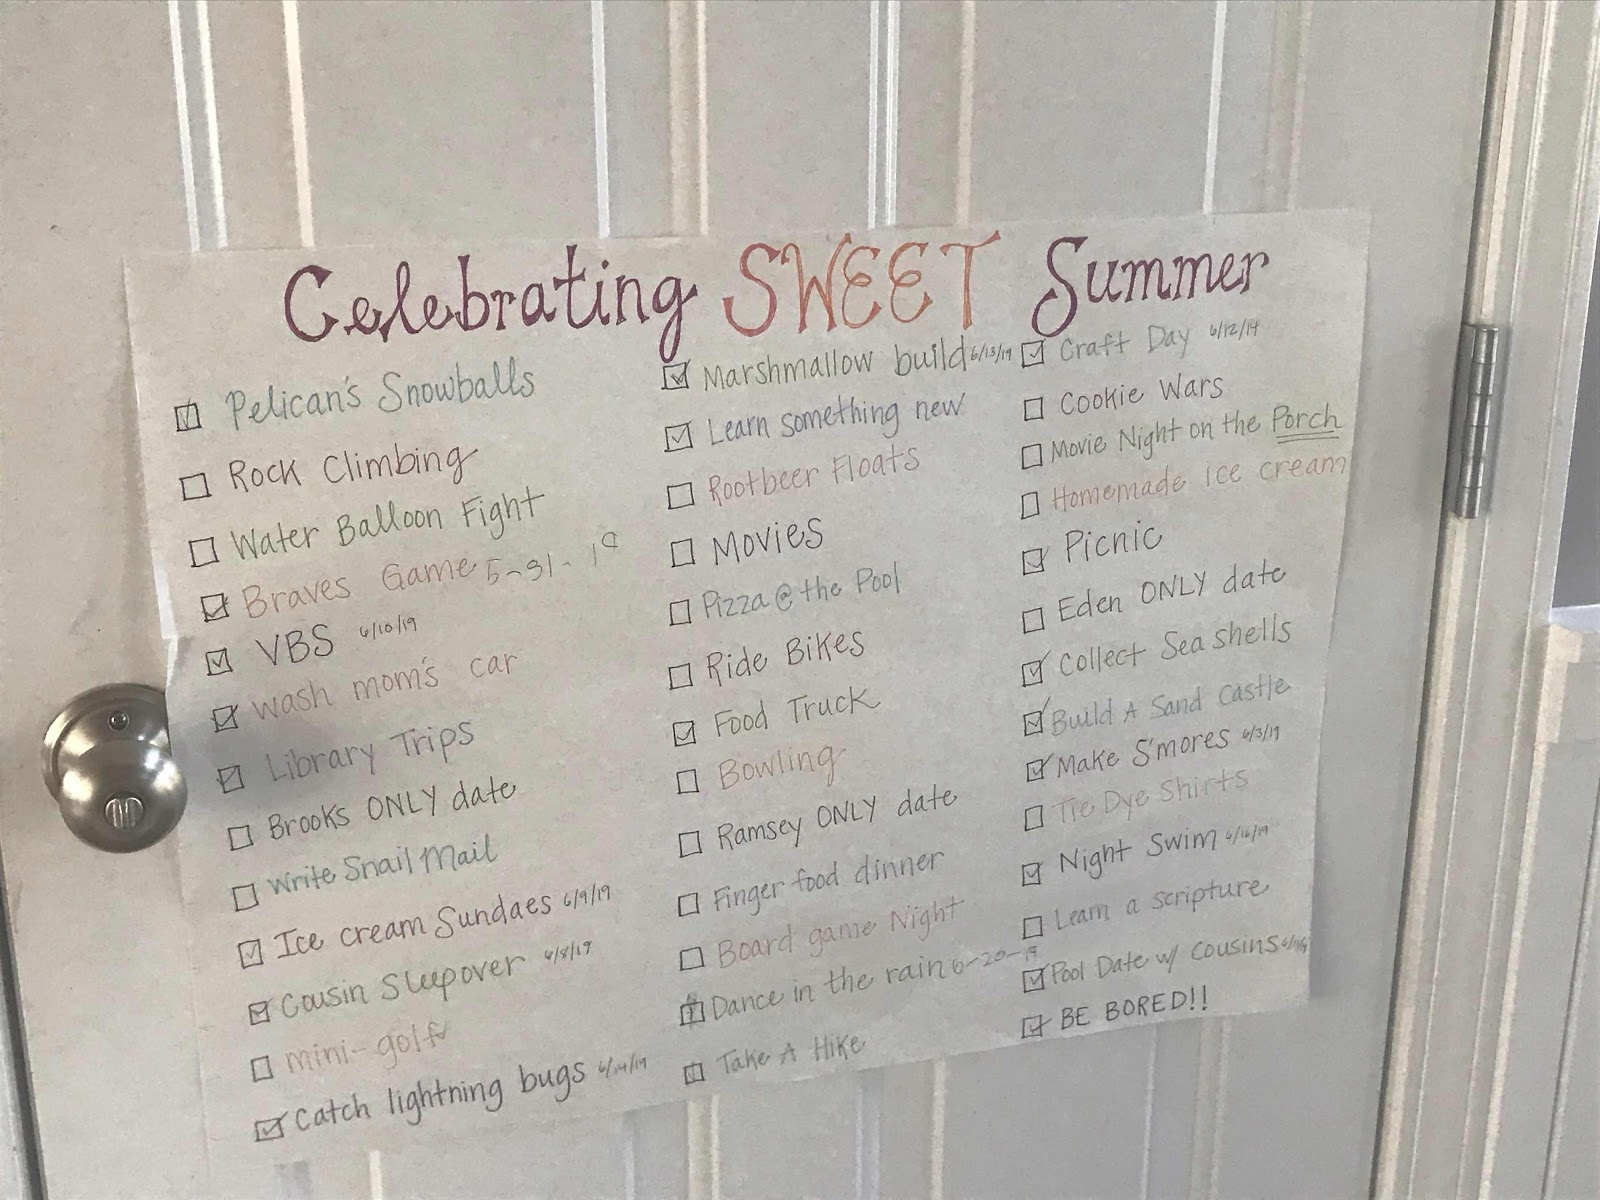 Celebrating SWEET Summer
Pelican's Snowballs
Rock Climbing
Water Balloon Fight
Braves Game 5-31-19
VBS 6/10/19
Wash mom's car
Library Trips
Brooks ONLY date
Write Snail Mail
Ice cream Sundaes 6/9/19
Cousin Sleepover 6/8/19
mini-golf
Catch lightning bugs 6/14/19
Marshmallow build 6/13/19
Learn something new
Rootbeer Floats
Movies
Pizza @ the Pool
Ride Bikes
Food Truck
Bowling
Ramsey ONLY date
Finger food dinner
Board game Night
Dance in the rain 6-20-19
Take A Hike
Craft Day 6/12/19
Cookie Wars
Movie Night on the Porch
Homemade Ice cream
Picnic
Eden ONLY date
Collect Sea shells
Build A Sand Castle
Make S'mores 6/3/19
Tie Dye Shirts
Night Swim 6/16/19
Learn a scripture
Pool Date w/ cousins
BE BORED!!